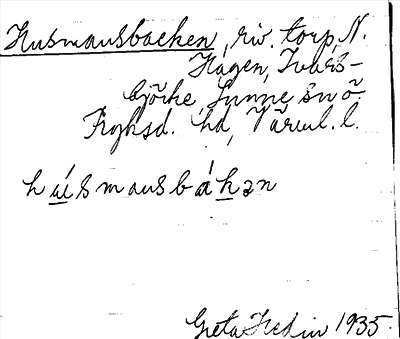 Husmansbacken, riv. torp, N.
Hagen, Ivars-
björke, Sunne sn ö.
Fryksd. hd, Värml. l.
húsmansbákən
Greta Hedin 1935.